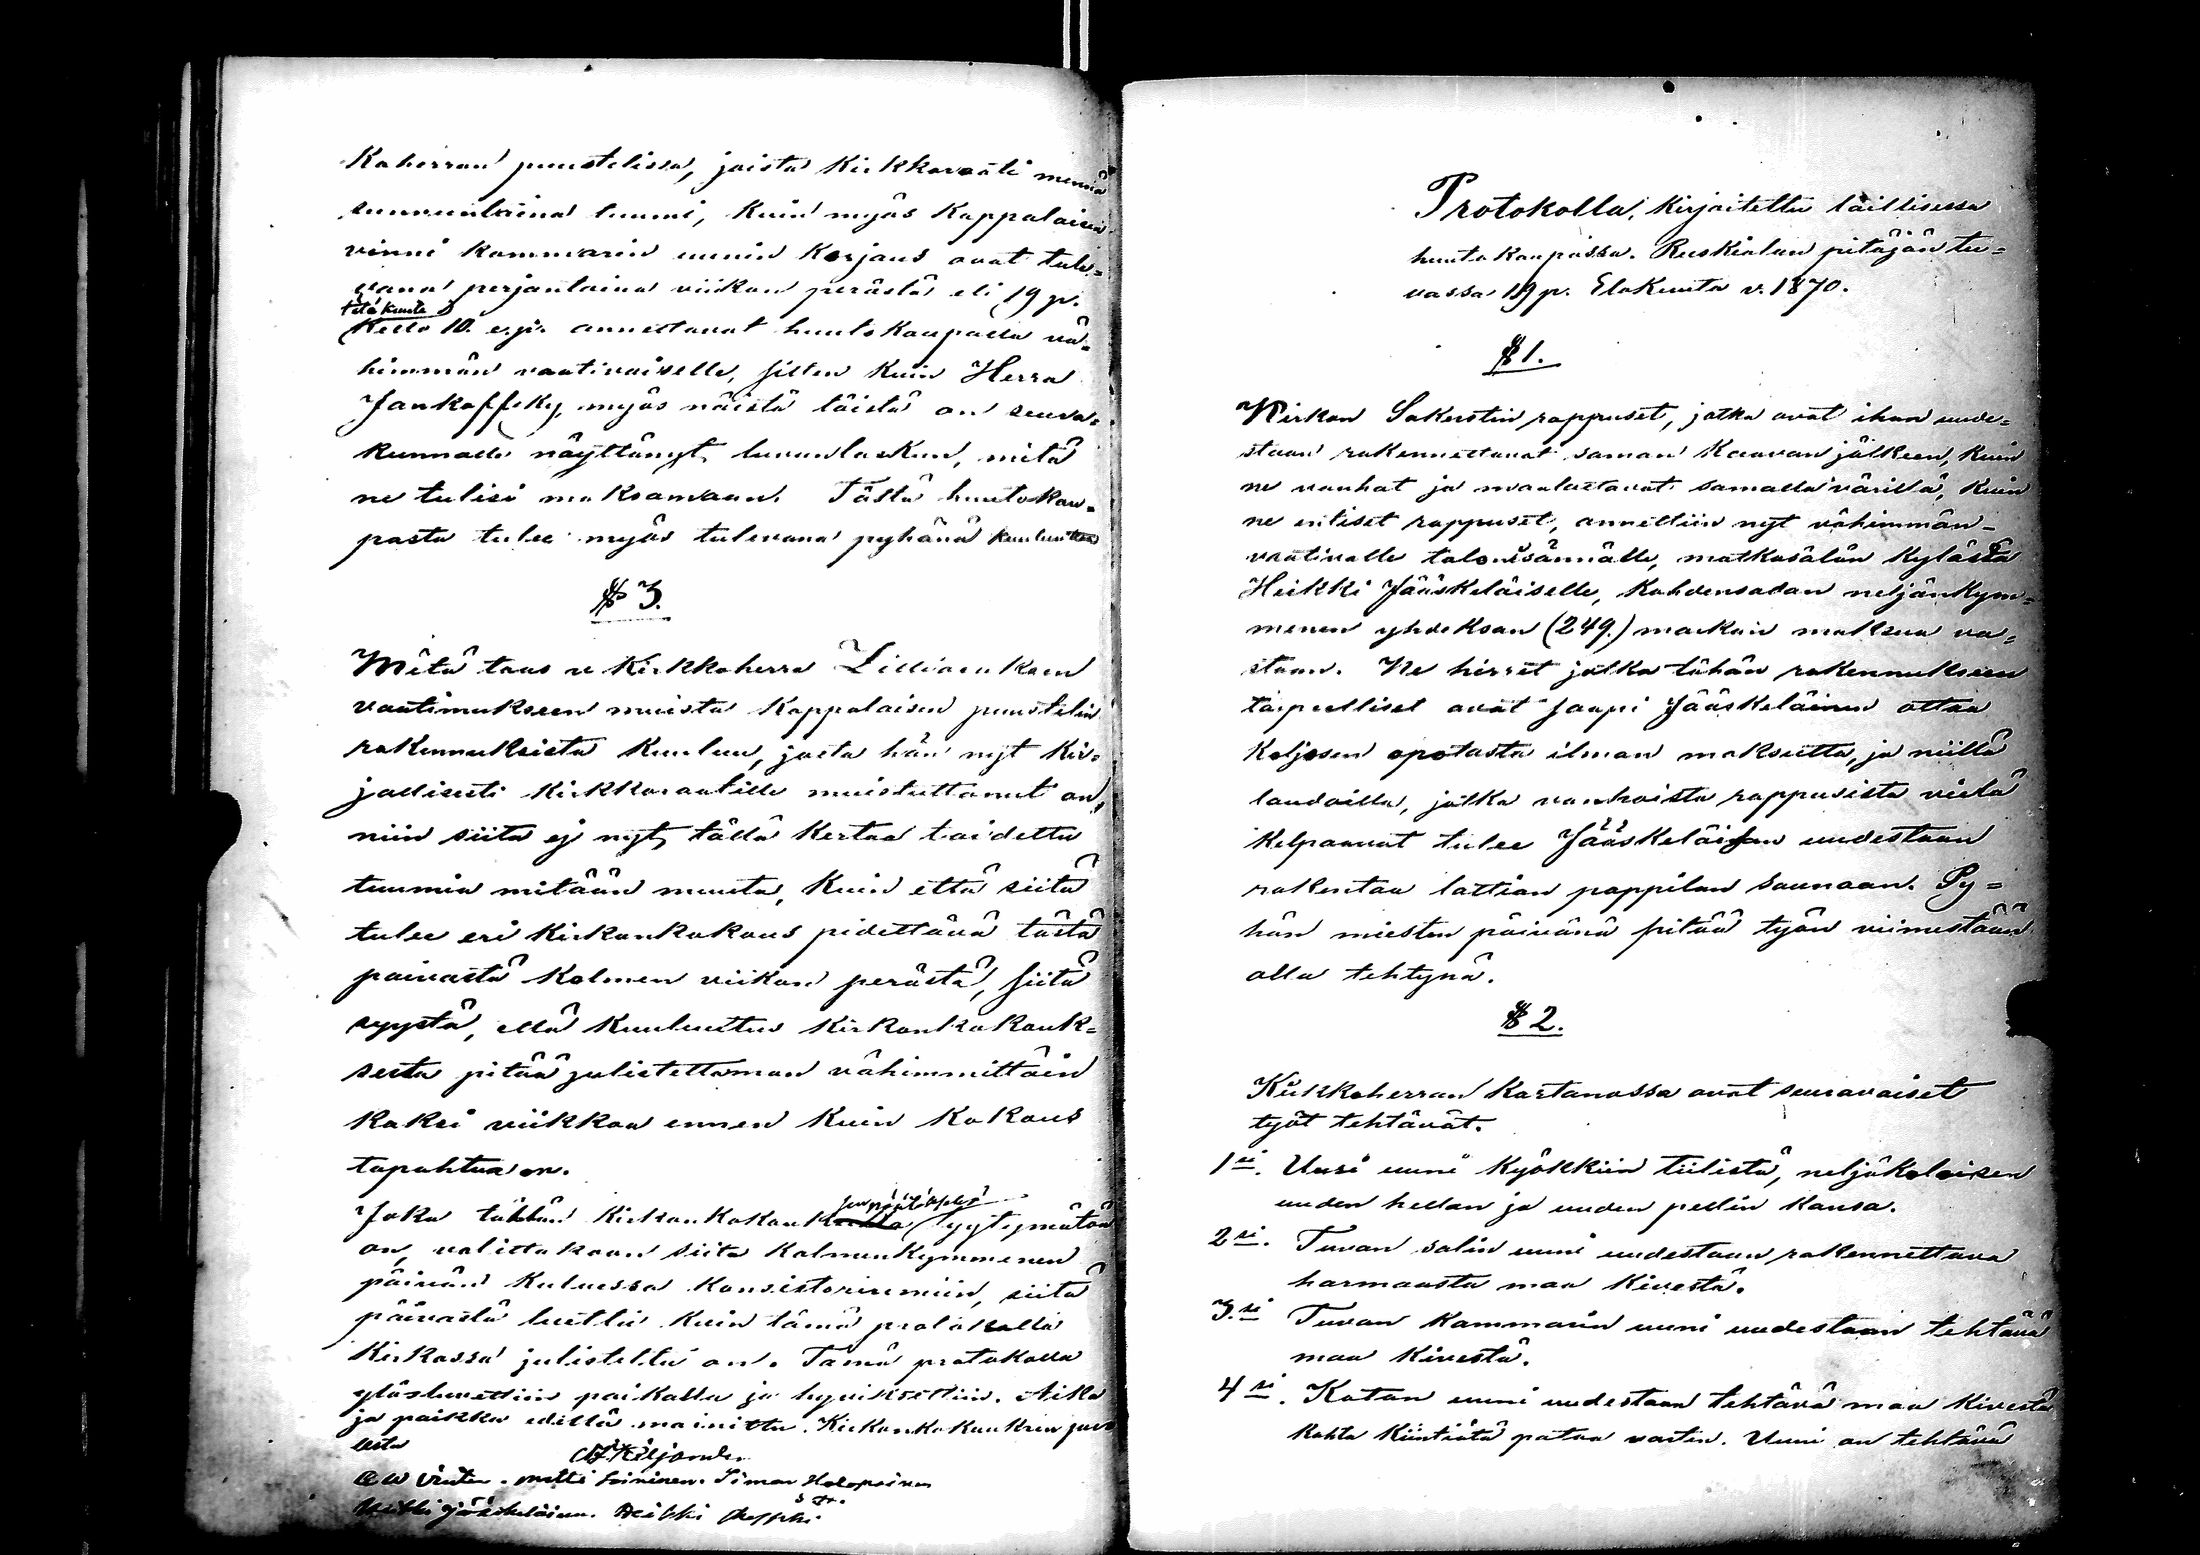 Koherran puustelissa, joista Kirkkovaati mennä
sunnuntaina tuumi, Kuin myös Kappalaisen
vinni kammarin uunin Korjaus ovat tule-
vana perjantaina viikon perästä eli 19 p.
Elokuuta
Kello 10. e.p. annettavat huutokaupalla vä-
himmän vaativaiselle, sitten Kuin Herra
Jankoffsky, myös näistä töistä on seura-
kunnalle näyttänyt luvunlaskun, mitä
ne tulisi maksamaan. Tästä huutokau-
pasta tulee myös tulevana pyhänä kuulutta
§ 3.
Mitä taas v. Kirkkoherra Lilliaeuksen
vaatimukseen muista Kappalaisen puustelin
rakennuksista Kuuluu, josta hän nyt Kir-
jallisesti Kirkkoraatille muistuttanut on,
niin siitä ej nyt tällä Kertaa taidettu
tuumia mitään muuta, Kuin että siitä
tulee eri Kirkonkokous pidettävä tästä
päivästä Kolmen viikon perästä, siitä
syystä, että Kuulutus Kirkonkokouk-
sesta pitää julistettaman vähimmittäin
kaksi viikkoa ennen Kuin Kokous
tapahtua on.
Joka tähän Kirkonkokouksen päätökseen tyytymätön
on, valittakoon siitä Kolmenkymmenen
päivän Kuluessa Konsistoriumiin, siitä
päivästä luettu Kuin tämä protokolla
Kirkossa julistettu on. Tämä protokolla
ylösluettiin paikalla ja hyviksettiin. Aika
ja paikka edellä mainittu. Kirkonkokouksen puo-
lesta
Kiljander
Matti Soininen. Simon Holopainen
Heikki Jääskeläinen. Heikki
Protokolla, Kirjoitettu laillisessa
huutokaupassa. Ruskialan pitäjän tu-
vassa 19 p. Elokuuta v. 1870.
§ 1.
Kirkon Sakerstin rappuset, jotka ovat ihan uude-
staan rakennettavat saman Kaavan jälkeen, Kuin
ne vanhat ja maalattavat samalla värillä, Kuin
ne entiset rappuset, annettiin nyt vähimmän-
vaativalle talonisännälle, matkaselän Kylästä
Heikki Jääskeläiselle, Kahdensadan neljänkym-
menen yhdeksän (249.) markan maksua va-
staan. Ne hirret jotka tähän rakennukseen
tarpeelliset ovat saapi Jääskeläinen ottaa
Koljosen opotasta ilman maksutta, ja niillä
laudoilla, jotka vanhoista rappusista vielä
kelpaavat tulee Jääskeläisen uudestaan
rakentaa lattian pappilan saunaan. Py-
hän miesten päivänä pitää työn viimestään
olla tehtynä.
§ 2.
Kirkkoherran Kartanossa ovat seuravaiset
työt tehtävät.
1si. Uusi uuni Kyökkiin tiilistä, neljäkoloisen
uuden hellan ja uuden pellin kansa.
2si. Tuvan salin uuni uudestaan rakennettava
harmaasta maa Kivestä.
3.si Tuvan Kammarin uuni uudestaan tehtävä
maa Kivestä.
4si. Kotan uuni uudestaan tehtävä maa Kivestä
kahta Kiintiätä pataa varten. Uuni on tehtävä